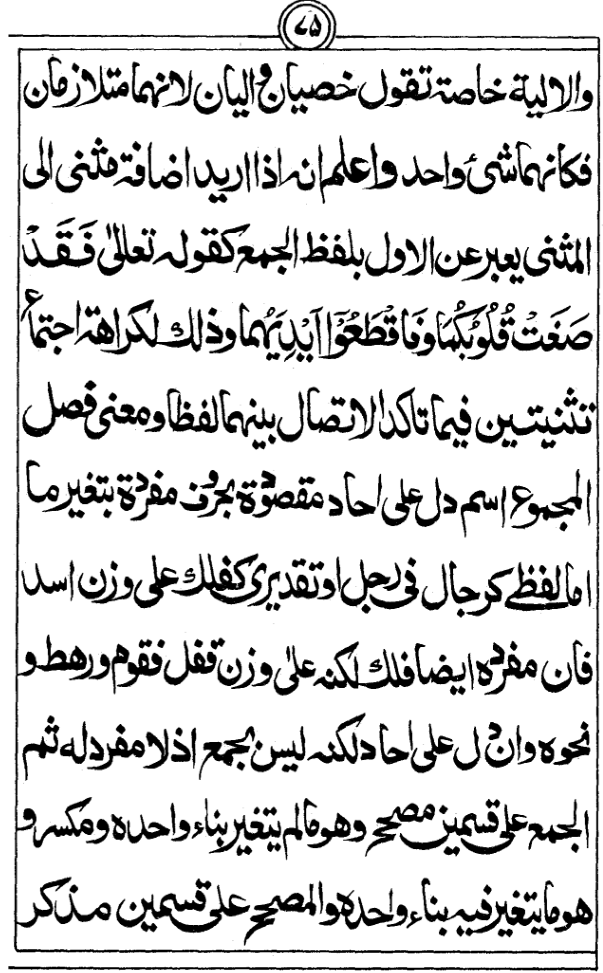 ۷۵
والالية خاصة تقول خصيان واليان لانهما متلازمان
فكانهما شئ واحد واعلم انه اذا اريد اضافة مثنى الى
المثنى يعبر عن الاول بلفظ الجمع كقوله تعالىٰ فَقَدْ
صَغَتْ قُلُوْبُكُمَا وفَاقْطَعُوْٓا اَيْدِيَهُمَا وذلك لكراهة اجتماع
تثنيتين فيما تاكد الاتصال بينهما لفظا ومعنى فصل
المجموع اسم دل على احاد مقصودة بحروف مفردة بتغير ما
اما لفظے كرجال فى رجل او تقديرى كفلك على وزن اسد
فان مفرده ايضا فلك لكنه علىٰ وزن قفل فقوم ورهط و
نحوه وان دل على احاد لكنه ليس بجمع اذلا مفرد له ثم
الجمع على قسمين مصحح وهو ما لم يتغير بناء واحده ومكسر و
هو ما يتغير فيه بناء واحده والمصحح على قسمين مذكر